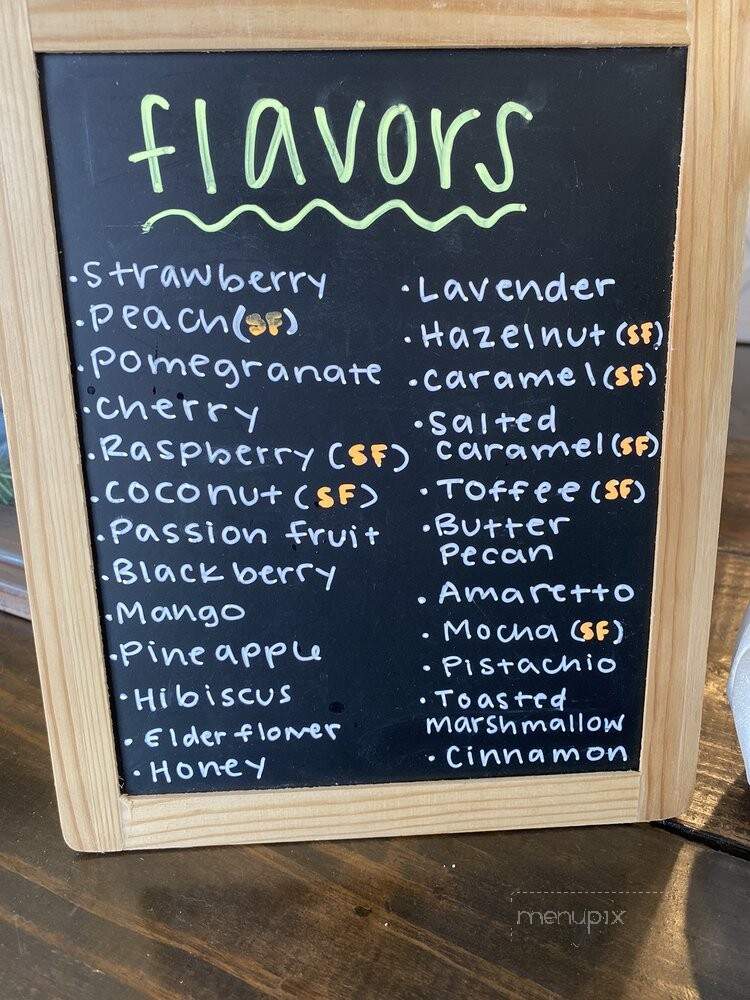 flavors
·Strawberry
·Peach (SF)
·Pomegranate
·Cherry
·Raspberry (SF)
·Coconut (SF)
·Passion fruit
·Blackberry
·Mango
·Pineapple
·Hibiscus
·Elderflower
·Honey
·Lavender
·Hazelnut (SF)
·Caramel (SF)
·Salted
caramel (SF)
·Toffee (SF)
·Butter
Pecan
·Amaretto
·Mocha (SF)
·Pistachio
·Toasted
marshmallow
·Cinnamon
menupix